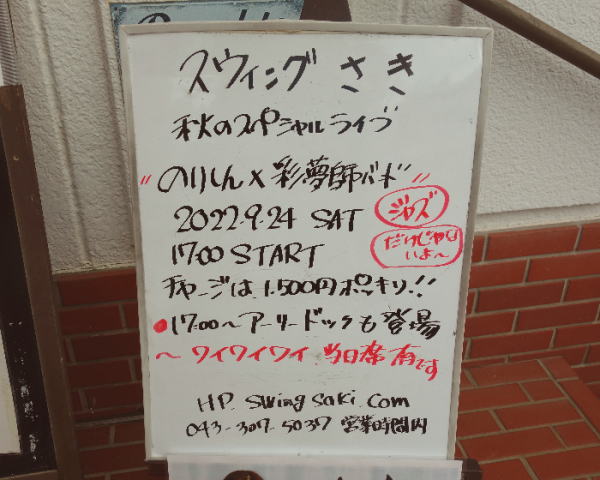 スウィング さき
秋のスペシャルライブ
"のりしん×彩夢師バード"
2022.9.24 SAT
ジャズ
だけじゃない
いよ～
17:00 START
チャージは1.500円ポッキリ!!
●17:00～アーリードックも登場
～ワイワイワイ 当日席有です
HP. swingsaki.com
043-307-5037 営業時間内